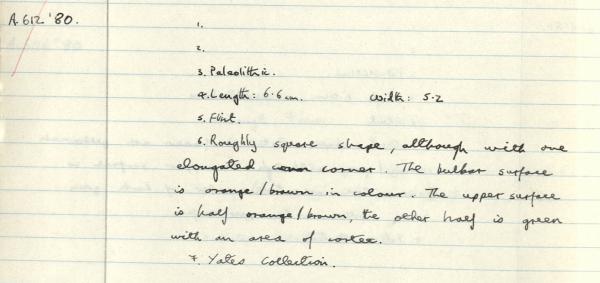 A.612'80.
1.
2.
3. Paleolithic.
4. Length: 6.6cm. Width: 5.2
5. Flint.
6. Roughly square shape, although with one
elongated corner. The bulbar surface
is orange/brown in colour. The upper surface
is half orange/brown, the other half is green
with an area of cortex.
7. Yates Collection.